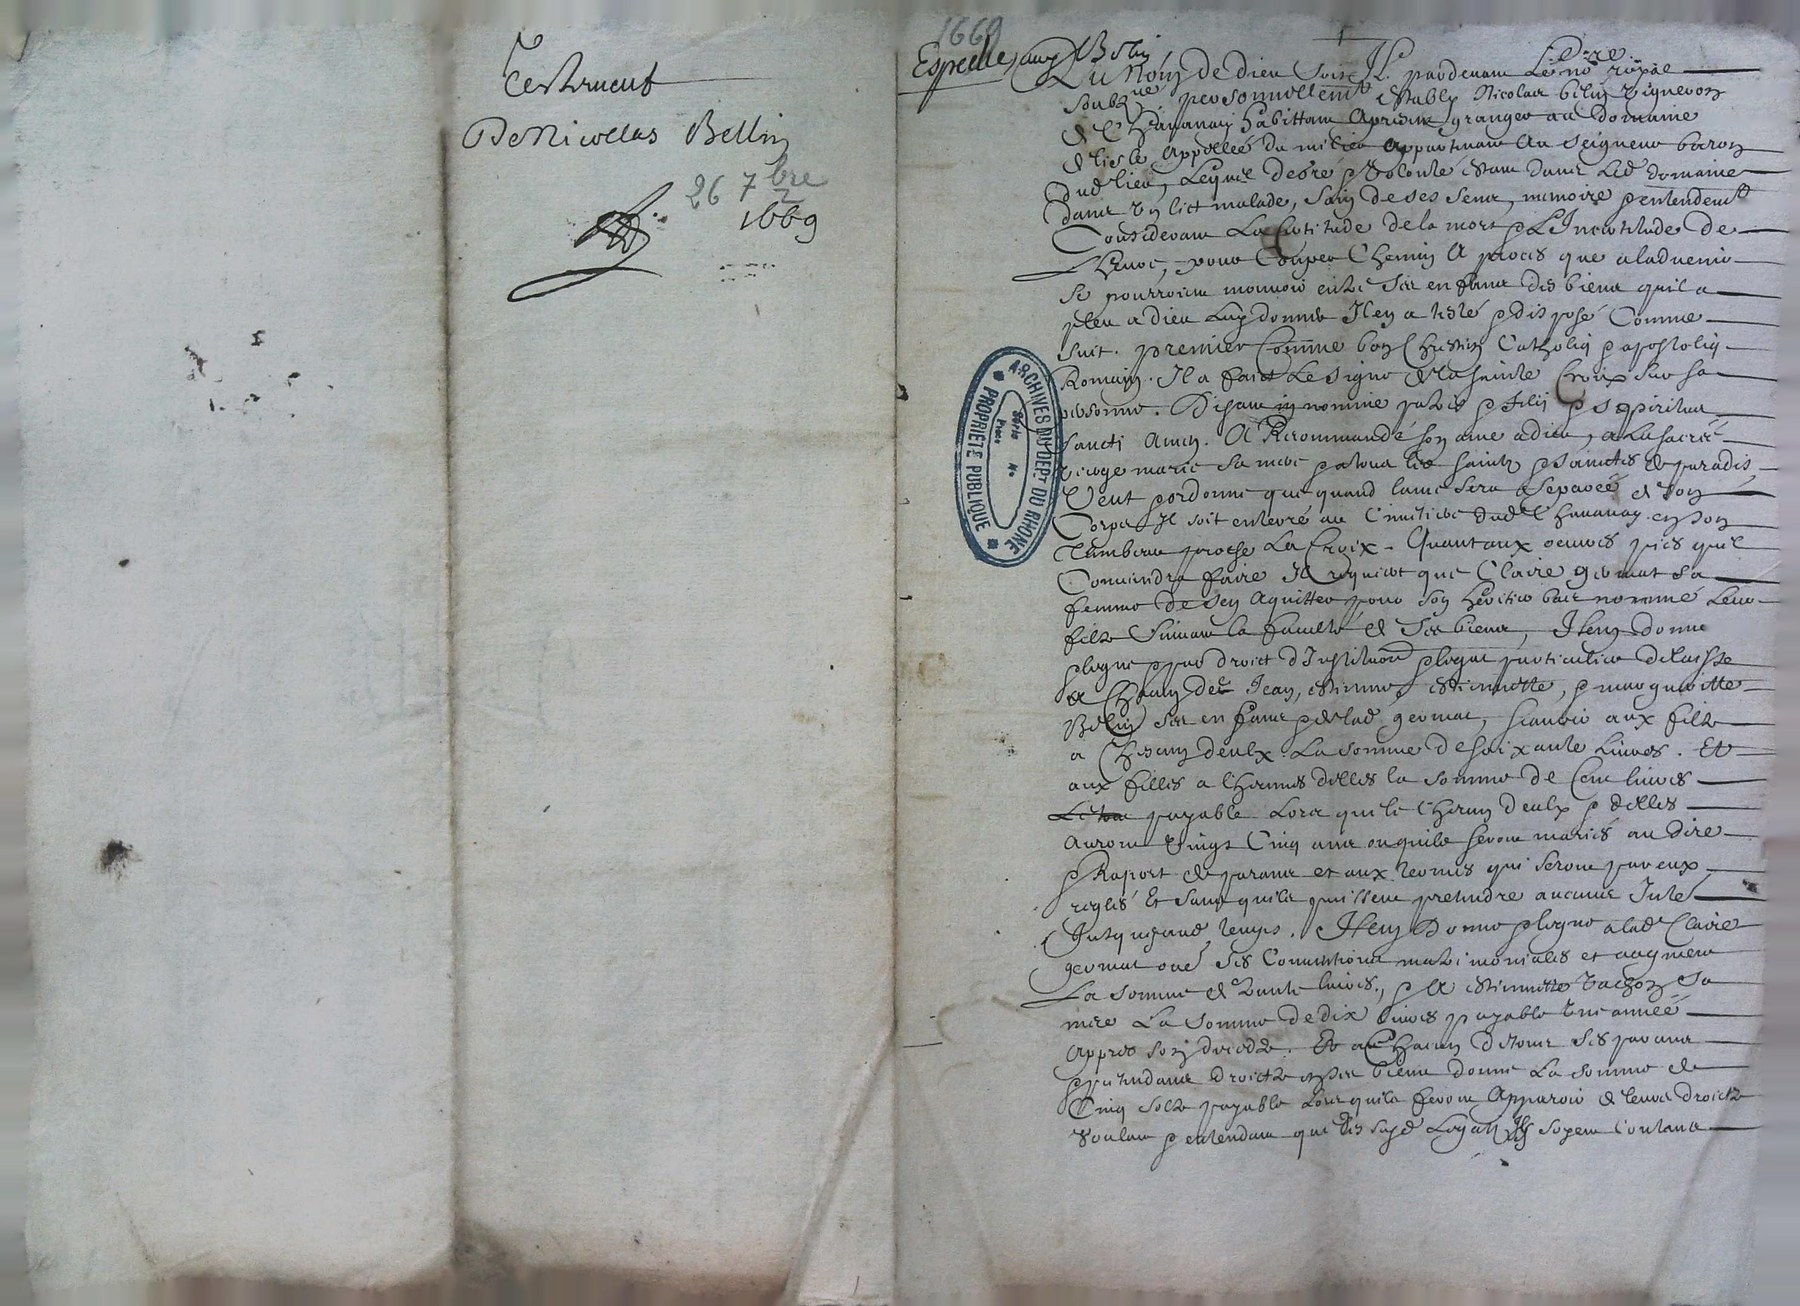 Testament
De Nicollas Bellin
26 7bre
1669
1669
Expedie aux Belin
Au Nom de Dieu soit Il pardevant Le no.re royal
soubz.né personnellemt establÿ Nicolas belin vigneron
de Chavanay habittant a present granger au domaine
de lisle Appellée du milieu appartenant Au seigneur baron
dud lieu, Lequel de gré & volonté estant dans Led domaine
dans un lict malade, sain de ses sens, memoire & entendemt
Considerant La Certitude de la mort & L'Incertitude de
L'heure, pour Couper Chemin A proces que a ladvenir
se pourroient mouvoir entre ses enfans des biens quil a
pleu a dieu Luy donner Il en a testé & disposé Comme
suit. premier Comme bon Chrestien Catholiq & apostoliq
Romain. Il a faict Le signe de la sainte Croix sur sa
personne. Disant in nomine patris & filij & spiritus
sancti Amen. A Recommandé son ame a dieu, a La sacrée
vierge marie sa mere & a tous les saints & sainctes de paradis
Veut & ordonne que quand lame sera separée de son
Corps Il soit enterré au Cimitiere dud Chavanay en son
Tumbeau proche La Croix. Quant aux oeuvres pies quil
Conviendra faire Il requiert que Claire germat sa
femme de sen aquitter pour son heritier bas nommé Leur
filz suivant la faculté de ses biens, Item donne
& legue & par droict d'Institution & legat particulier delaisse
a Chacun de Jean, estienne, estiennette, & margueritte
Belin ses enfans & de lad germat, scavoir aux filz
a Chacun deulx La somme de soixante Livres. Et
aux filles a Chacunes delles la somme de Cent livres
payable Lors que le Chacun deulx & delles
Auront vingt Cinq ans ou quils seront mariés au dire
& Raport de parans et aux termes qui seront par eux
reglés Et sans quils puissent pretendre aucuns Inte
Jusqu'aud temps. Item Donne & legue a lad Claire
germat oué ses Conventions matrimoniales et augment
La somme de trante livres, & a estiennette vachon sa
mere La somme de dix livres payable une année
Appres son deceds. Et a Chacun de tous ses parans
& pretendans droictz en ses biens donne La somme de
Cinq solz payable Lors quils feront Apparoir de leurs droictz
voulant & entendant que des susd Legatz Ils soyent Contans
ARCHIVES DU DEPT DU RHONE
PROPRIÉTÉ PUBLIQUE
Série No
Pièce